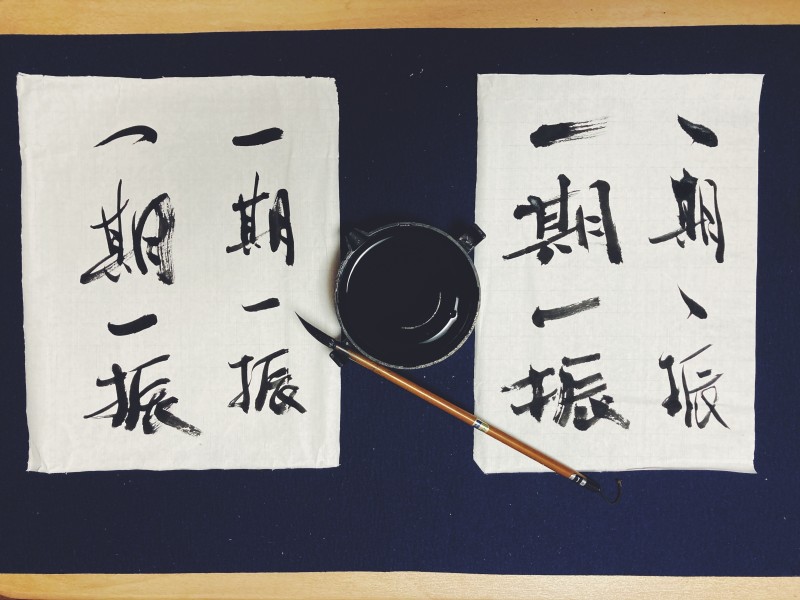 一期一振
一期一振
一期一振
一期一振